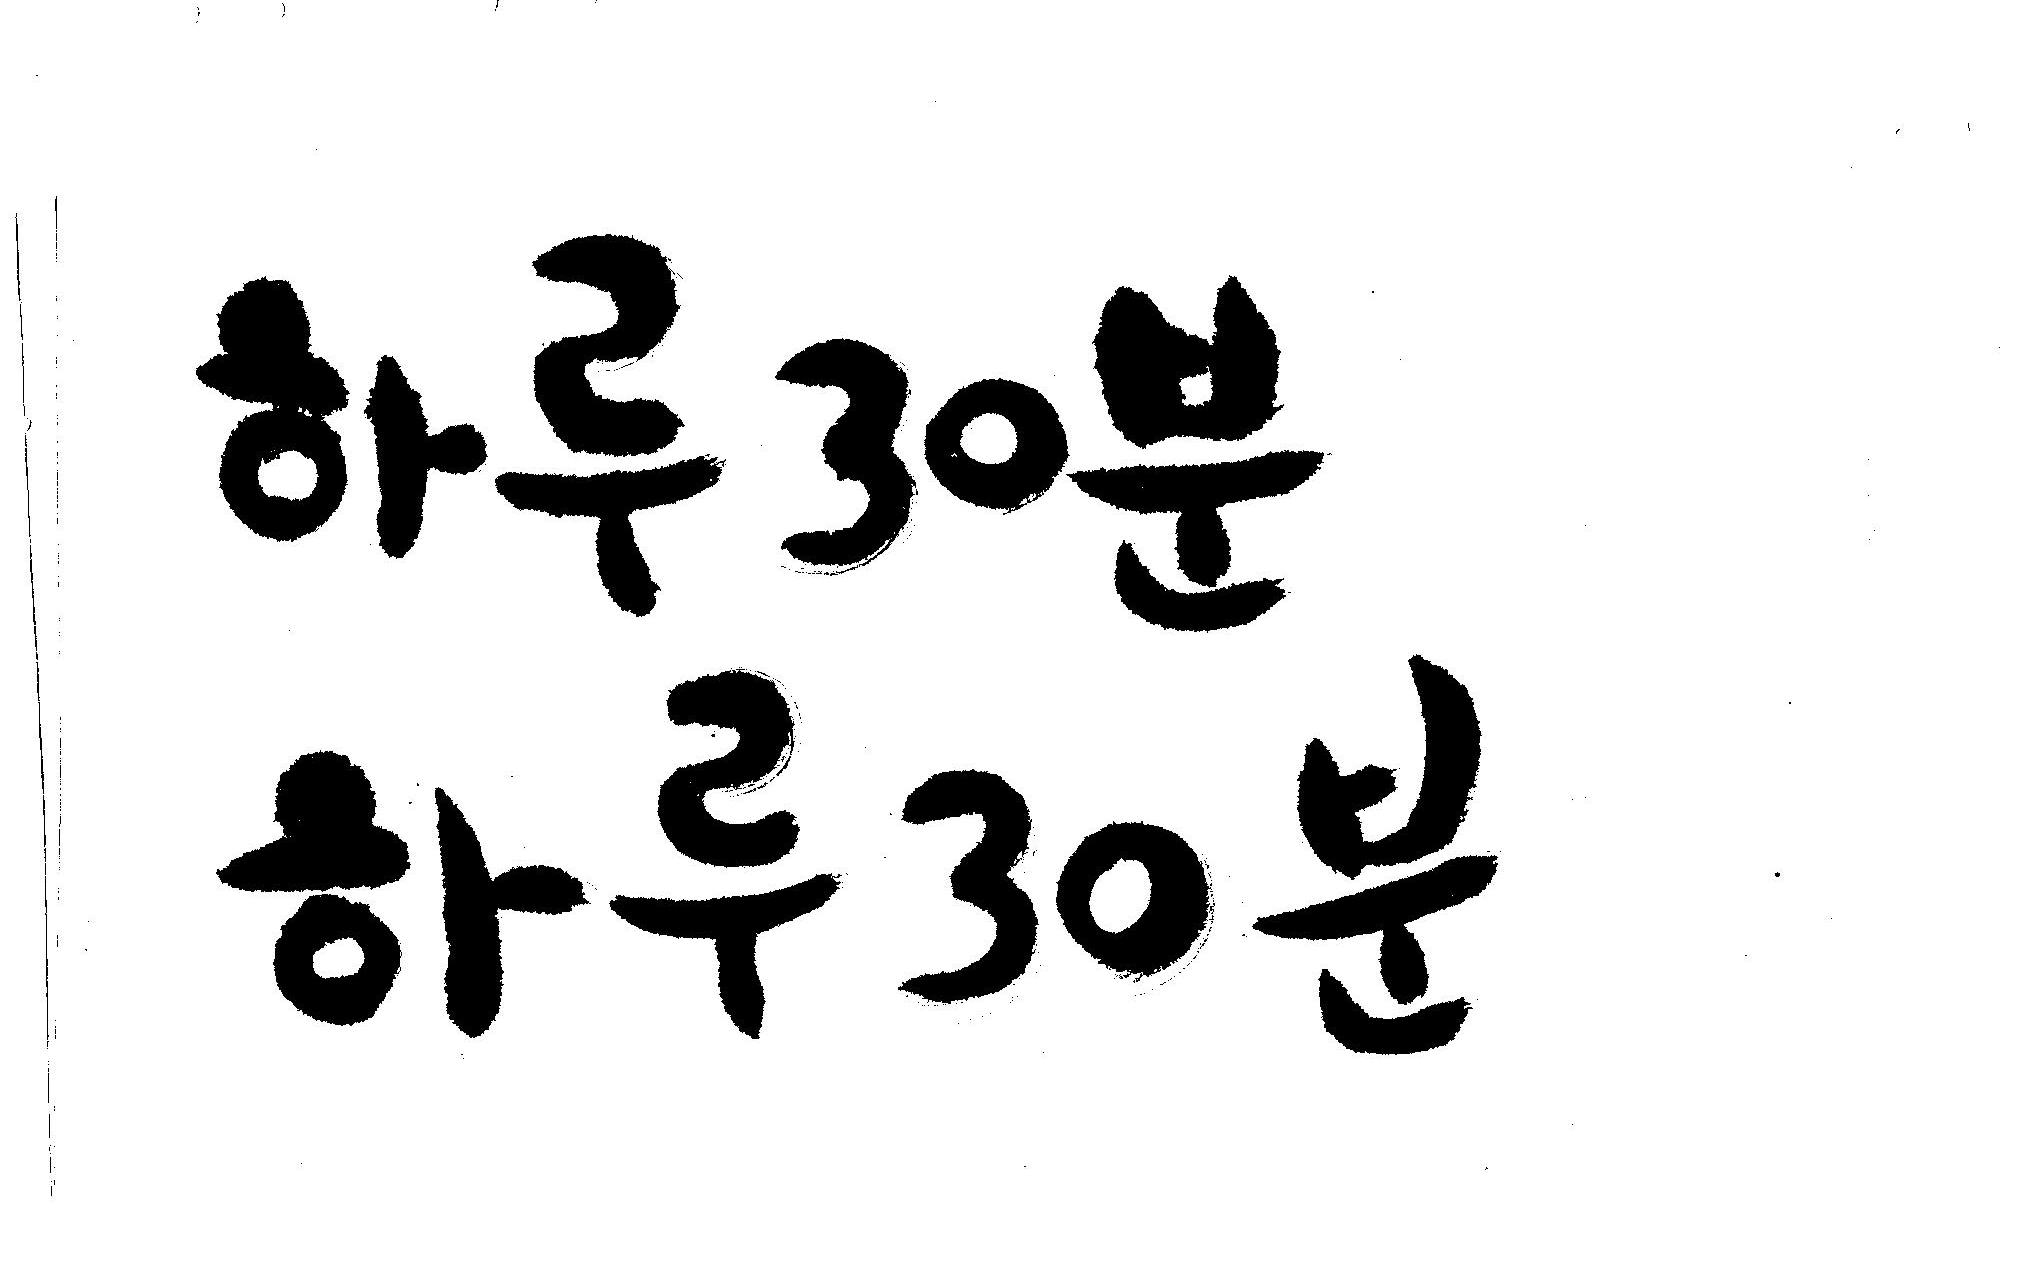 하루 30분
하루 30분